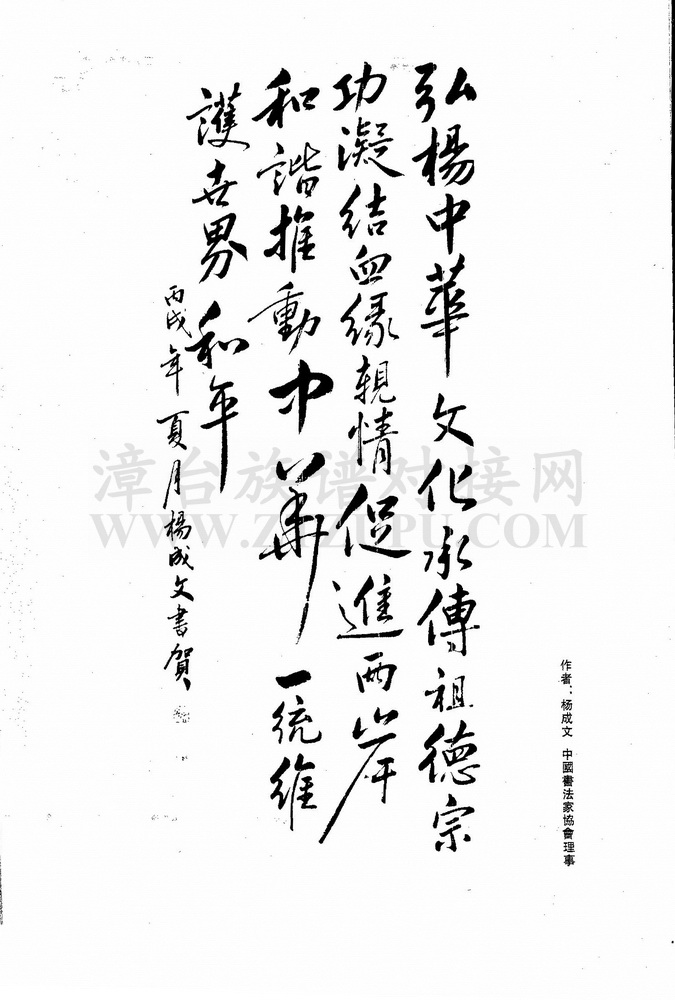 弘楊中華文化承傳祖德宗
功凝結血緣親情促進两岸
和諧推動中華一统維
護世界和平
丙戌年夏月楊成文書賀
作者：杨成文 中國書法家協會理事
漳台族谱对接网
WWW.ZTZUPU.COM